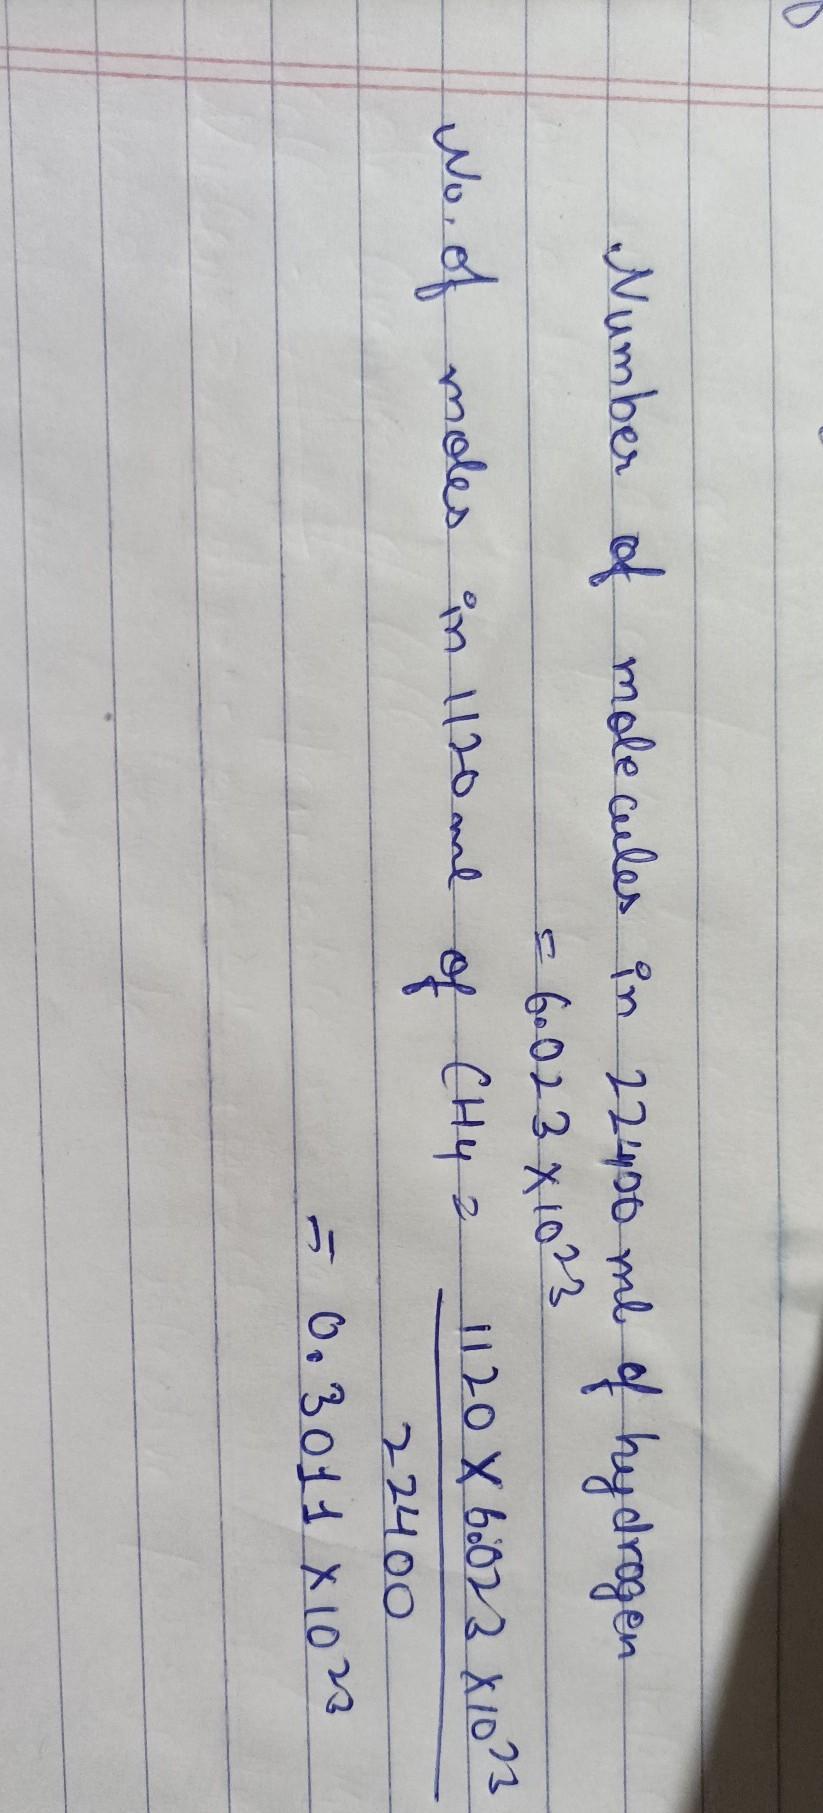 Number of molecules in 22400 ml of hydrogen
= 6.023 × 10²³
No. of moles in 1120 ml of CH4 = 1120 × 6.023 × 10²³
22400
= 0.3011 × 10²³